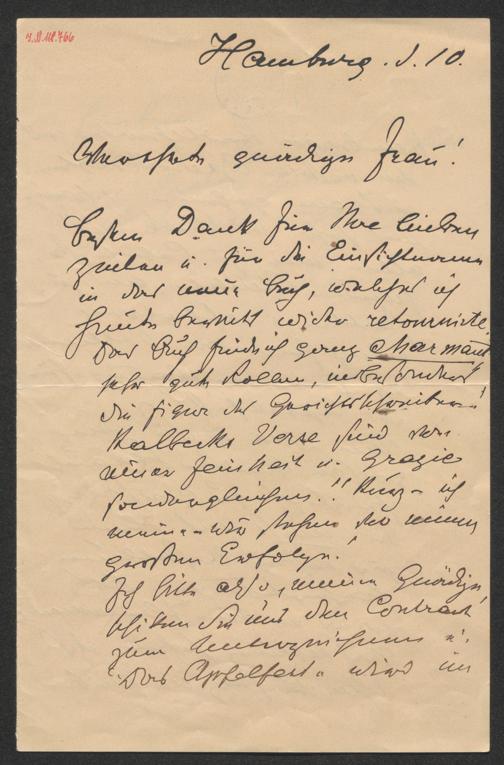 J.N. 111.766
Hamburg. d. 10.
Verehrte gnädige Frau!
besten Dank für Ihre lieben
Zeilen u. für die Einsichtnahme
in das neue Buch, welches ich
heute bereits wieder retournirte.
Das Buch finde ich ganz charmant
sehr gute Rollen, insbesondere
die Figur des Gerichtsschreibers!
Kalbecks Verse sind von
einer Feinheit u. Grazie
sondergleichen!! Kurz – ich
meine – wir stehen vor einem
großen Erfolge!
Ich bitte also, meine Gnädige,
schicken Sie uns den Contract
zum Unterzeichnen u.
"Das Apfelfest" wird im